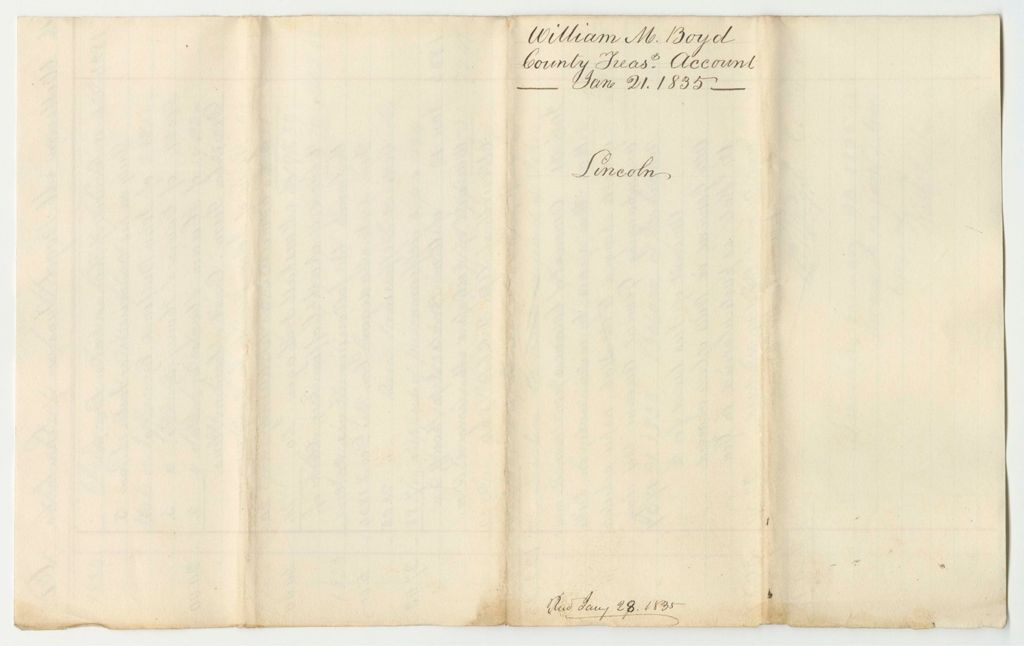 William M. Boyd
County Treas.r Account
Jan 21. 1835
Lincoln
Recd Jany 28. 1835